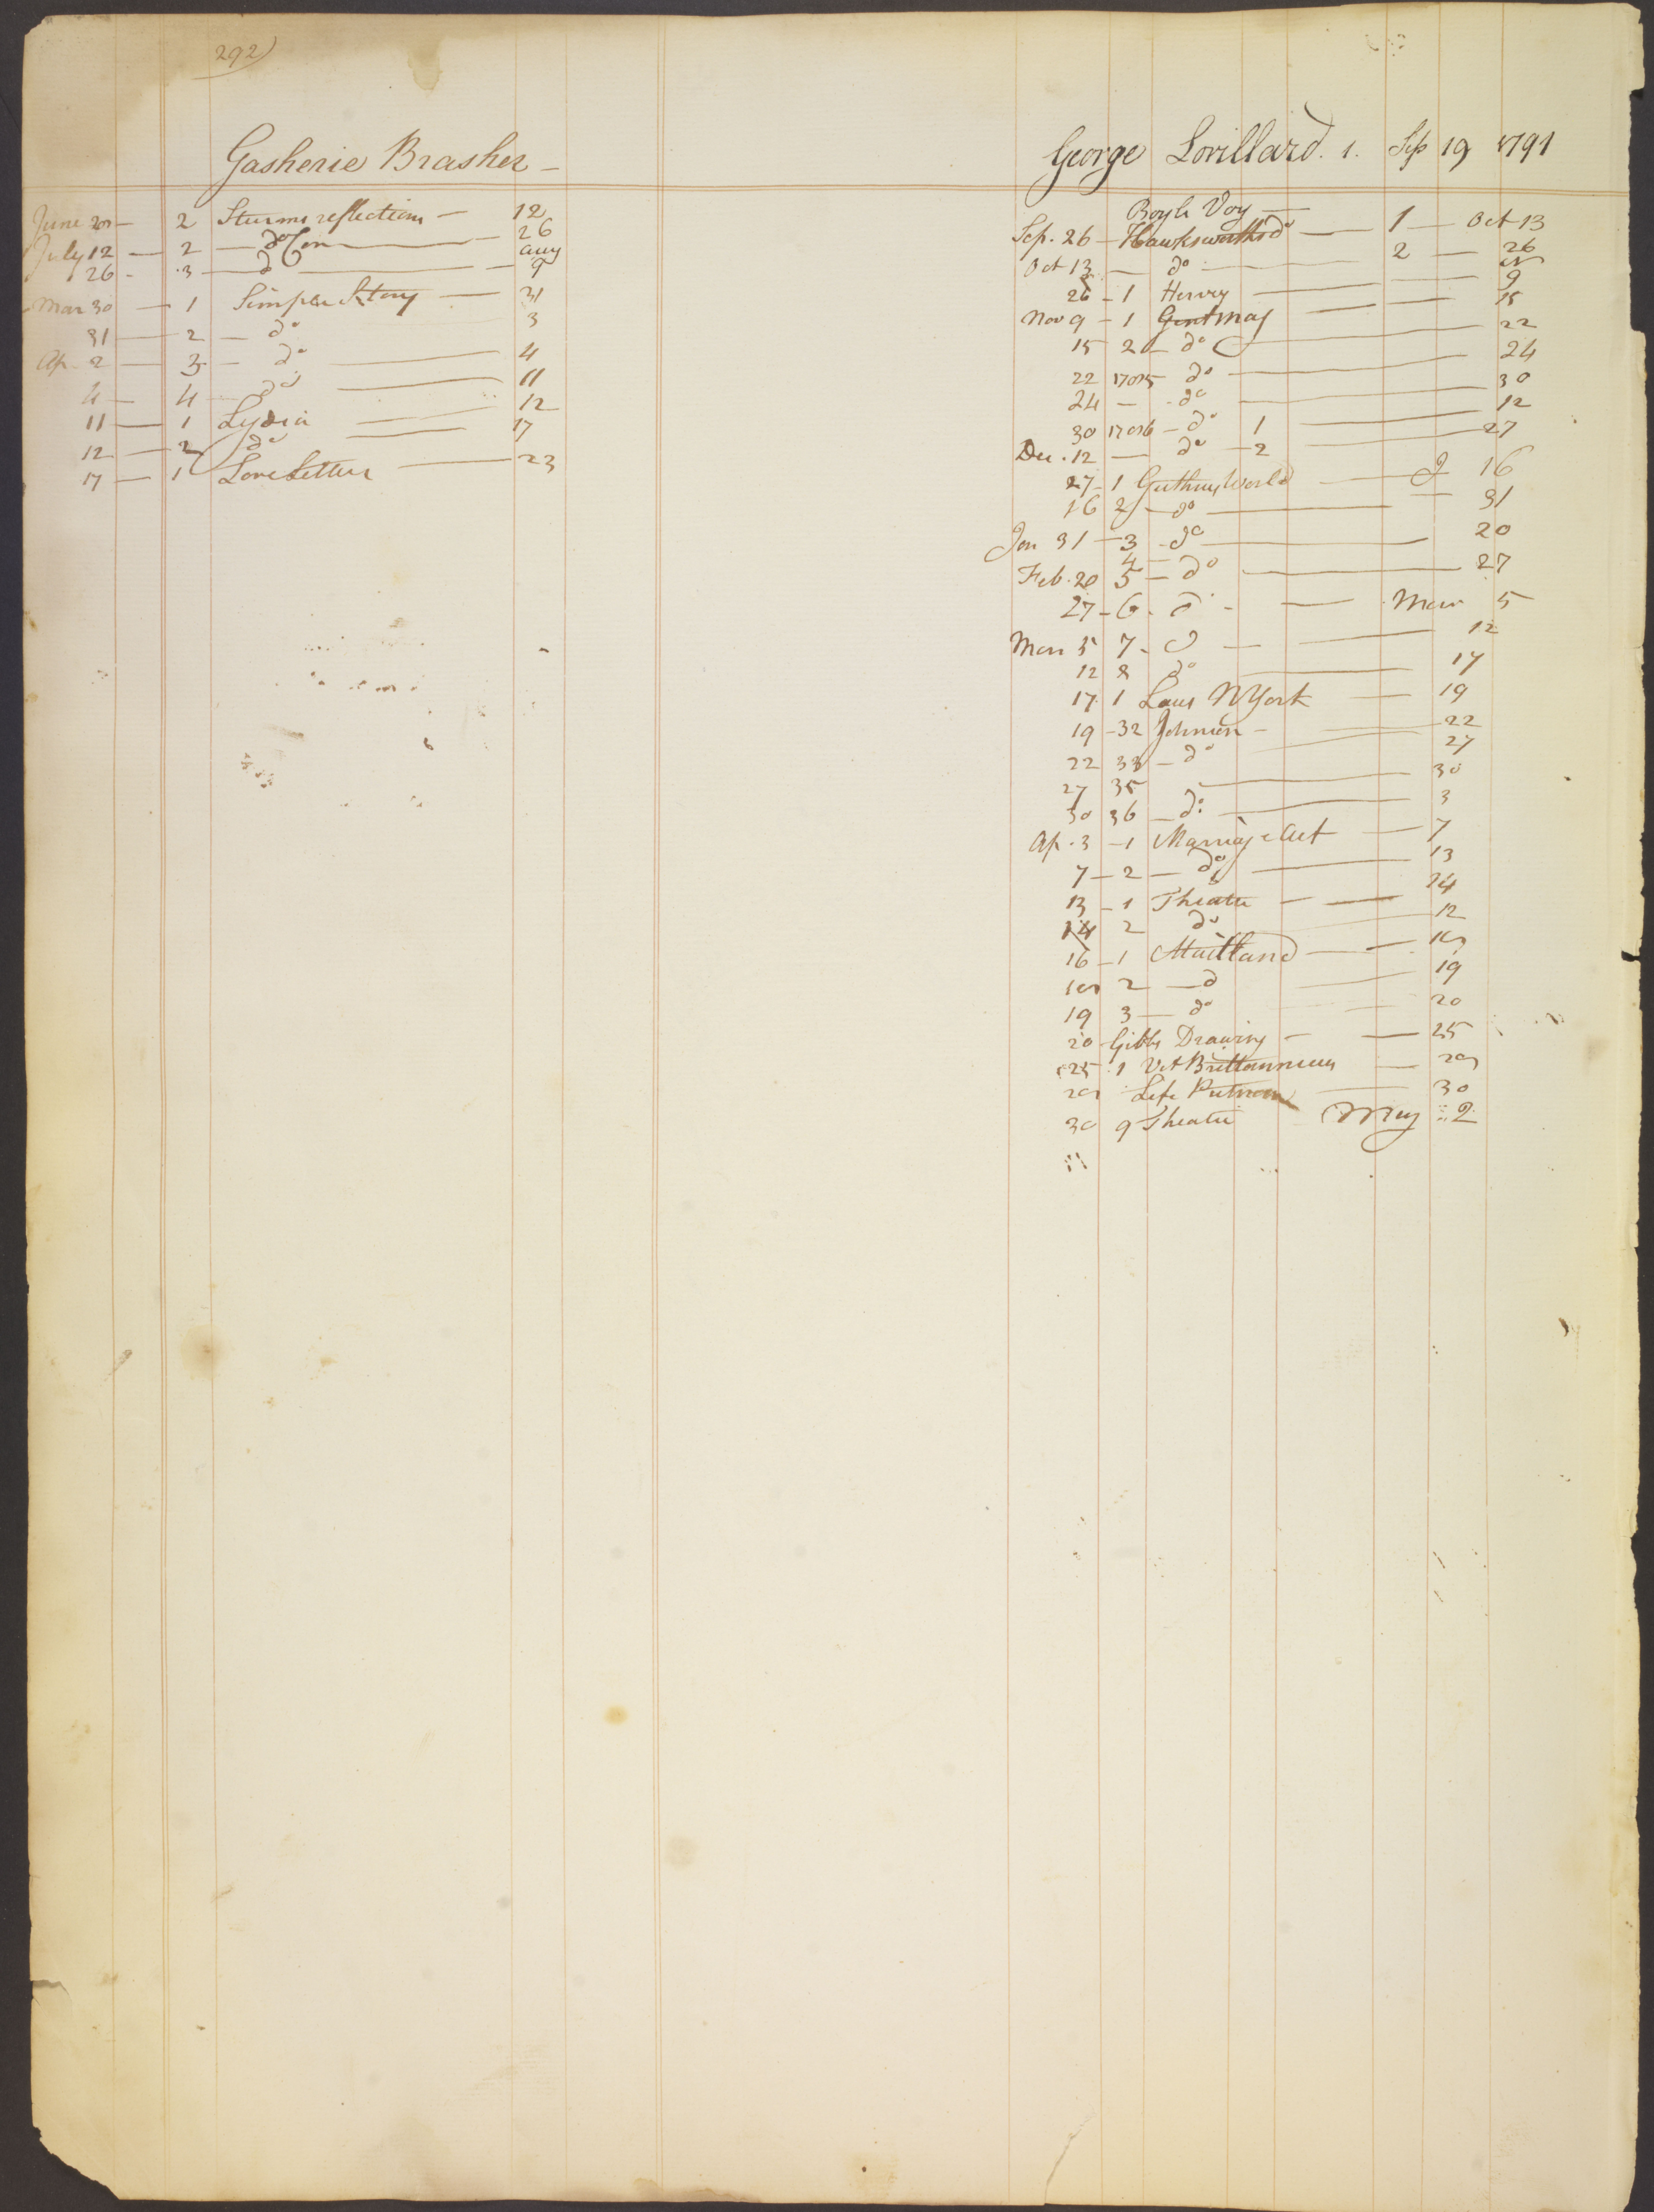 292
Gasherie Brasher
June 28 — 2 Sturms reflections — 12
July 12 — 2 — do Con — 26
26 - 3 — do — Aug 9
Mar 30 — 1 Simple Story — 31
31 — 2 — do 3
Ap. 2 — 3 — do 4
4 — 4 do — 11
11 — 1 Lydia — 12
12 — 2 do — 17
17 — 1 Love Letters — 23
George Lorillard. 1. Sep 19 1791
Boyle Voy —
Sep. 26 — Hawksworths do — 1 — Oct 13
Oct 13 — do — 2 — 26
26 - 1 Hervey — N 9
Nov 9 - 1 Gent Mag — 15
15 2 — do — 22
22 1785 do — 24
24 — do — 30
30 1786 — do 1 — 12
Dec. 12 — do — 2 — 27
27 - 1 Guthrey World — J 16
16 2 — do — 31
Jan 31 — 3 - do — 20
4 —
Feb. 20 5 — do — 27
27 - 6 - do - — Mar 5
Mar 5 7 - do — 12
12 8 do — 17
17 1 Laws N York — 19
19 - 32 Johnson — 22
22 33 — do — 27
27 35 — 30
30 36 — do — 3
Ap. 3 - 1 Marriage Act — 7
7 — 2 — do — 13
13 - 1 Theatre — 14
14 2 do —
16 - 1 Maitland — 18
18 2 — do — 19
19 3 — do — 20
20 Gibbs Drawing — 25
25 1 Vet Brittannicus — 28
28 Life Putnam — 30
30 9 Theatre May 2